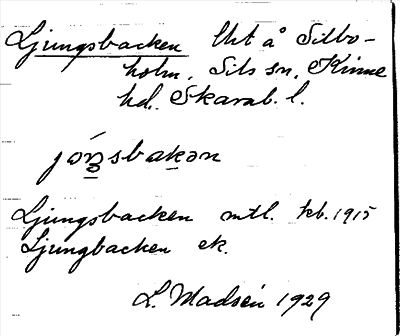 Ljungsbacken lht å Silbo-
holm, Sils sn, Kinne
hd. Skarab. l.
jɵŋsbakən
Ljungsbacken mtl. kb. 1915
Ljungbacken ek.
L. Madsén 1929